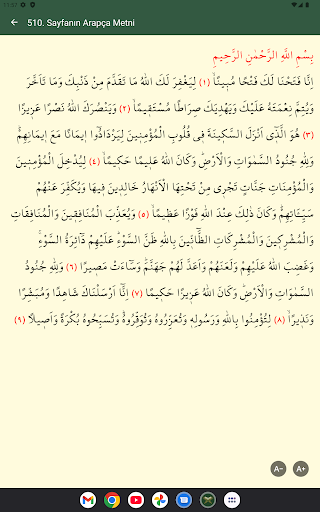 11:37
510. Sayfanın Arapça Metni
بِسْمِ اللَّهِ الرَّحْمٰنِ الرَّحٖيمِ
اِنَّا فَتَحْنَا لَكَ فَتْحًا مُبٖينًاۙ ﴿١﴾ لِيَغْفِرَ لَكَ اللّٰهُ مَا تَقَدَّمَ مِنْ ذَنْبِكَ وَمَا تَاَخَّرَ
وَيُتِمَّ نِعْمَتَهُ عَلَيْكَ وَيَهْدِيَكَ صِرَاطًا مُسْتَقٖيمًاۙ ﴿٢﴾ وَيَنْصُرَكَ اللّٰهُ نَصْرًا عَزٖيزًا
﴿٣﴾ هُوَ الَّذٖٓى اَنْزَلَ السَّكٖينَةَ فٖى قُلُوبِ الْمُؤْمِنٖينَ لِيَزْدَادُٓوا اٖيمَانًا مَعَ اٖيمَانِهِمْؕ
وَلِلّٰهِ جُنُودُ السَّمٰوَاتِ وَالْاَرْضِؕ وَكَانَ اللّٰهُ عَلٖيمًا حَكٖيمًاۙ ﴿٤﴾ لِيُدْخِلَ الْمُؤْمِنٖينَ
وَالْمُؤْمِنَاتِ جَنَّاتٍ تَجْرٖى مِنْ تَحْتِهَا الْاَنْهَارُ خَالِدٖينَ فٖيهَا وَيُكَفِّرَ عَنْهُمْ
سَيِّـَٔاتِهِمْؕ وَكَانَ ذٰلِكَ عِنْدَ اللّٰهِ فَوْزًا عَظٖيمًاۙ ﴿٥﴾ وَيُعَذِّبَ الْمُنَافِقٖينَ وَالْمُنَافِقَاتِ
وَالْمُشْرِكٖينَ وَالْمُشْرِكَاتِ الظَّٓانّٖينَ بِاللّٰهِ ظَنَّ السَّوْءِؕ عَلَيْهِمْ دَٓائِرَةُ السَّوْءِۚ
وَغَضِبَ اللّٰهُ عَلَيْهِمْ وَلَعَنَهُمْ وَاَعَدَّ لَهُمْ جَهَنَّمَؕ وَسَٓاءَتْ مَصٖيرًا ﴿٦﴾ وَلِلّٰهِ جُنُودُ
السَّمٰوَاتِ وَالْاَرْضِؕ وَكَانَ اللّٰهُ عَزٖيزًا حَكٖيمًا ﴿٧﴾ اِنَّٓا اَرْسَلْنَاكَ شَاهِدًا وَمُبَشِّرًا
وَنَذٖيرًاۙ ﴿٨﴾ لِتُؤْمِنُوا بِاللّٰهِ وَرَسُولِهٖ وَتُعَزِّرُوهُ وَتُوَقِّرُوهُؕ وَتُسَبِّحُوهُ بُكْرَةً وَاَصٖيلًا ﴿٩﴾
A- A+